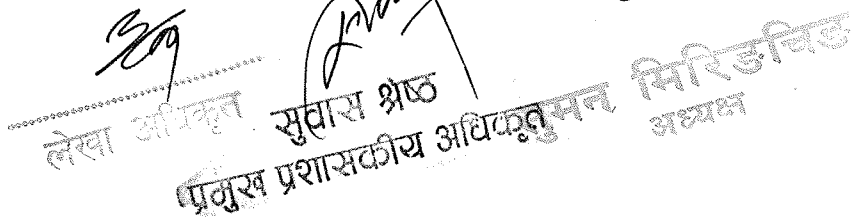 लेखा अधिकृत
सुवास श्रेष्ठ
प्रमुख प्रशासकीय अधिकृत
मन मिरिङचिङ
अध्यक्ष